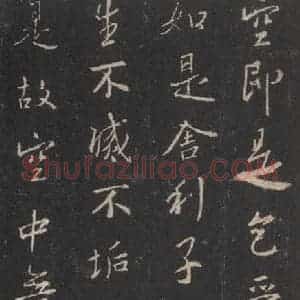 空即是色受
如是舍利子
生不滅不垢
是故空中無
Shufaziliao.com